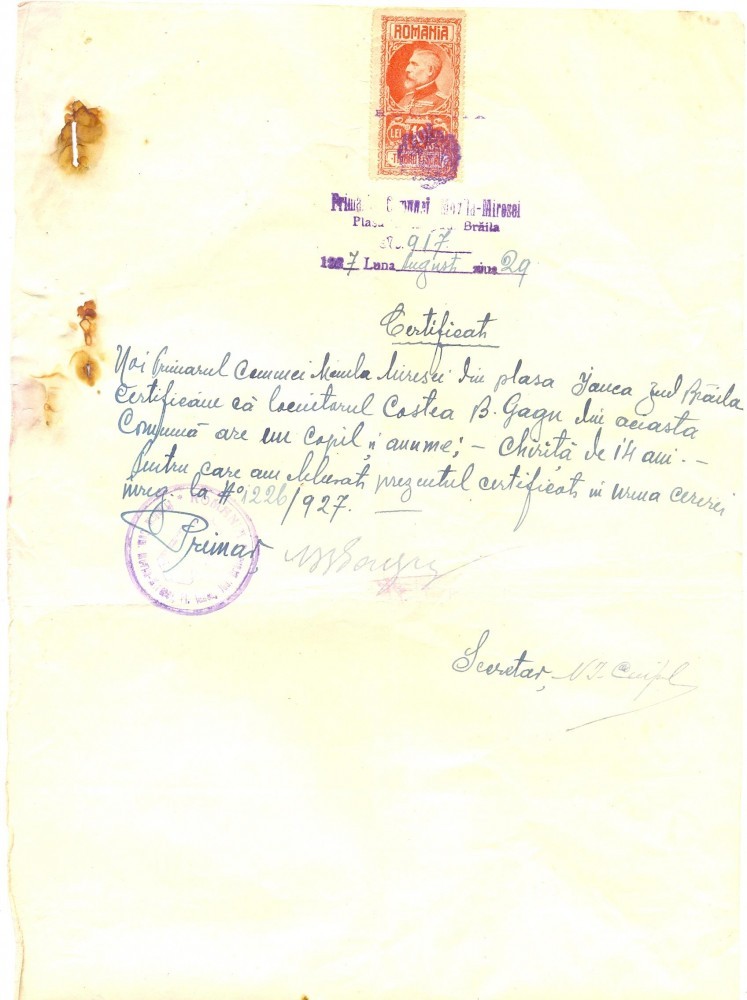 ROMANIA
LEI
Primăria Comunei Movila-Miresei
Plasa Brăila
No. 917.
1927 Luna August ziua 29
Certificat
Noi Primarul Comunei Movila Miresei din plasa Ianca jud Brăila
Certificăm că locuitorul Costea B. Gagu din aceasta
Comună are un copil și anume; – Chiriță de 14 ani. –
Pentru care am liberat prezentul certificat in urma cererei
inreg. la No 1226/927. —
Primar
Secretar,